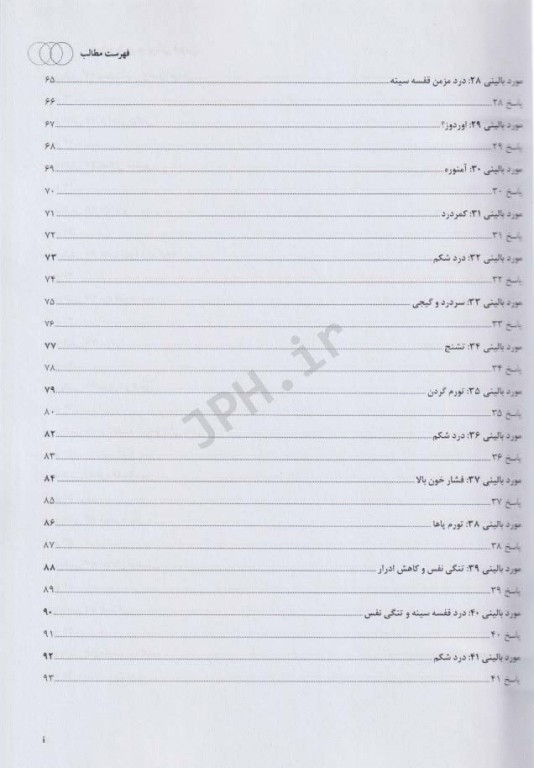 فهرست مطالب
مورد بالینی ۲۸: درد مزمن قفسه سینه ۶۵
پاسخ ۲۸ ۶۶
مورد بالینی ۲۹: اوردوز؟ ۶۷
پاسخ ۲۹ ۶۸
مورد بالینی ۳۰: آمنوره ۶۹
پاسخ ۳۰ ۷۰
مورد بالینی ۳۱: کمردرد ۷۱
پاسخ ۳۱ ۷۲
مورد بالینی ۳۲: درد شکم ۷۳
پاسخ ۳۲ ۷۴
مورد بالینی ۳۳: سردرد و گیجی ۷۵
پاسخ ۳۳ ۷۶
مورد بالینی ۳۴: تشنج ۷۷
پاسخ ۳۴ ۷۸
مورد بالینی ۳۵: تورم گردن ۷۹
پاسخ ۳۵ ۸۰
مورد بالینی ۳۶: درد شکم ۸۲
پاسخ ۳۶ ۸۳
مورد بالینی ۳۷: فشار خون بالا ۸۴
پاسخ ۳۷ ۸۵
مورد بالینی ۳۸: تورم پاها ۸۶
پاسخ ۳۸ ۸۷
مورد بالینی ۳۹: تنگی نفس و کاهش ادرار ۸۸
پاسخ ۳۹ ۸۹
مورد بالینی ۴۰: درد قفسه سینه و تنگی نفس ۹۰
پاسخ ۴۰ ۹۱
مورد بالینی ۴۱: درد شکم ۹۲
پاسخ ۴۱ ۹۳
JPH.ir